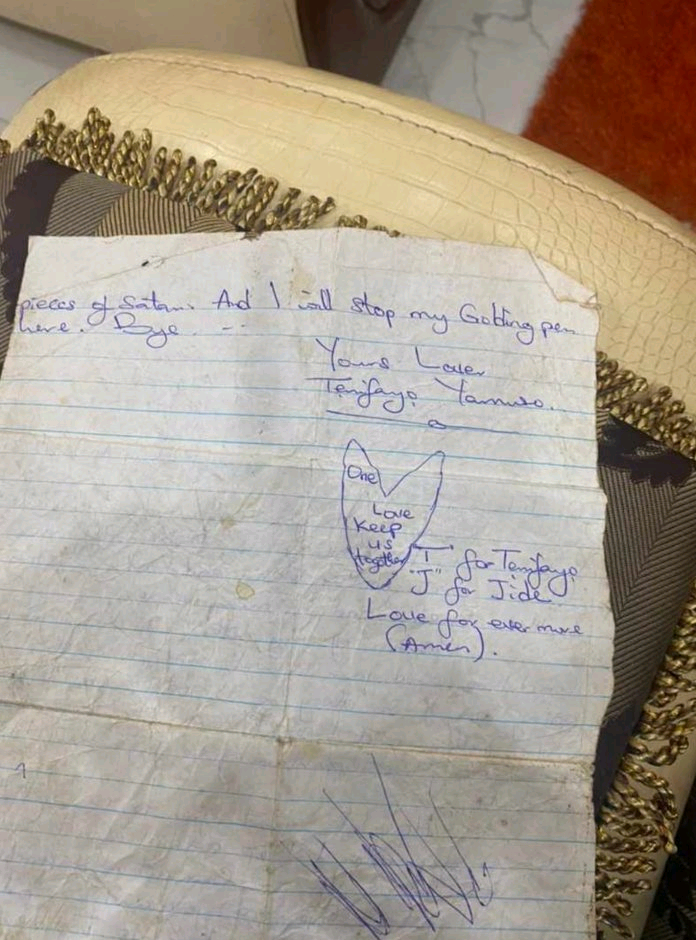 pieces of Satan. And I will stop my Golding pen
here. Bye --
Yours Lover
Temifayo
One
Love
Keep
us
together
"T" for Temifayo
"J" for Jide
Love for ever more
(Amen).